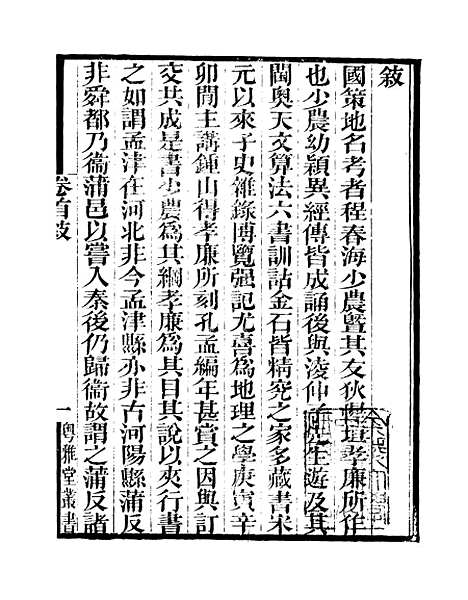 敍
國策地名考者程春海少農曁其友狄 孝廉所作
也少農幼穎異經傳皆成誦後與淩仲子先生遊及其
閫奧天文算法六書訓詁金石皆精究之家多藏書宋
元以來子史雜錄博覽强記尤喜爲地理之學庚寅辛
卯閒主講鍾山得孝廉所刻孔孟編年甚賞之因與訂
交共成是書少農爲其綱孝廉爲其目其說以夾行書
之如謂孟津在河北非今孟津縣亦非古河陽縣蒲反
非舜都乃衞蒲邑以嘗入秦後仍歸衞故謂之蒲反諸
卷首敍
一
粵雅堂叢書